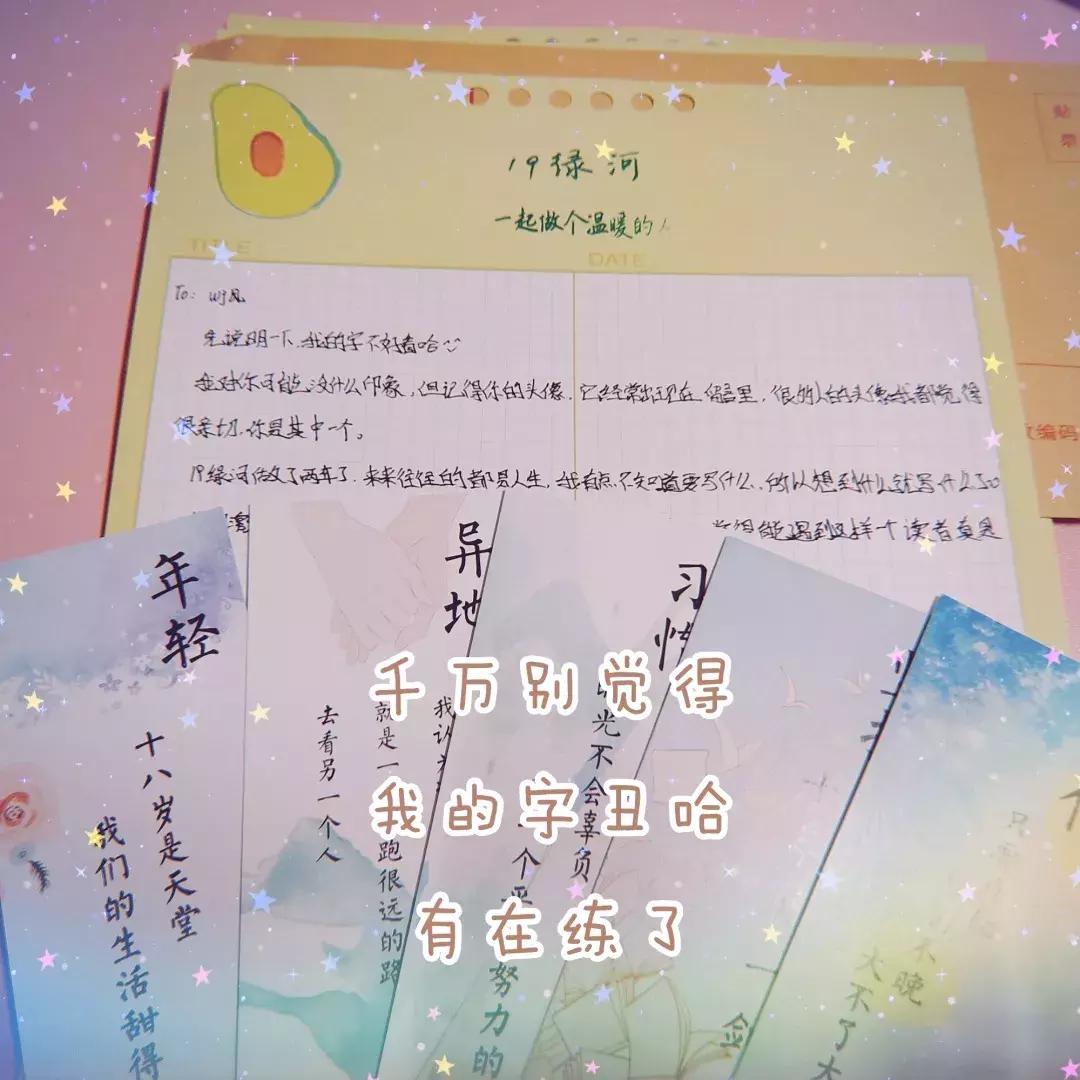 19绿河
一起做个温暖的人
TITLE:
DATE
To: wj风
先说明一下,我的字不好看哈
我对你可能没什么印象,但记得你的头像,它经常出现在留言里,很多人的头像我都觉得
很亲切,你是其中一个。
19绿河做了两年了,来来往往的都是人生,我有点不知道要写什么,所以想到什么就写什么
能遇到这样一个读者真是
贴
票
编码
年轻
十八岁是天堂
我们的生活甜得
异地
我认
就是一
跑很远的路
去看另一个人
习惯
光不会辜负
一个平
努力的
不晚
大不了大
千万别觉得
我的字丑哈
有在练了